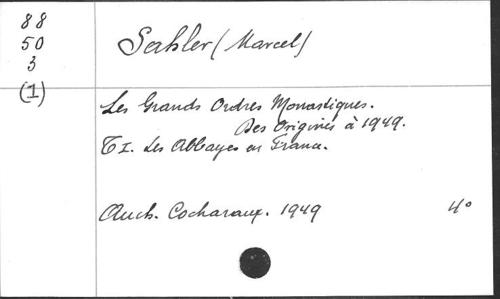 88
50
3
(1)
Sahler (Marcel)
Les Grands Ordres Monastiques.
Des Origines à 1949.
T I. Les Abbayes en France.
Auch. Cocharaux. 1949 4°